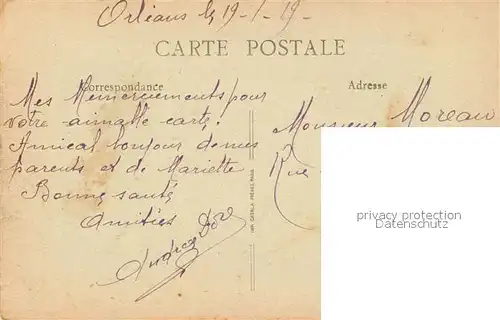 Orléans le 19-1-19-
CARTE POSTALE
Correspondance
Adresse
Mes Remerciements pour
votre aimable carte!
Amical bonjour de mes
parents et de Mariette
Bonne santé
Amitiés
Monsieur Moreau
Rue
privacy protection
Datenschutz